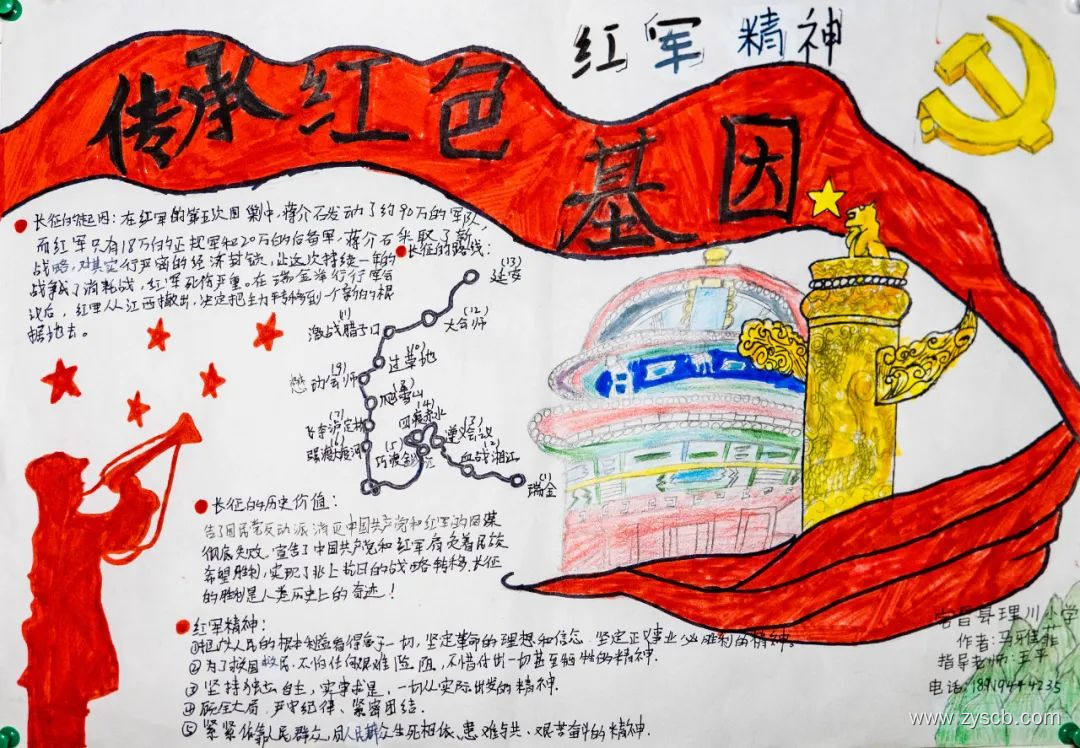 红军精神
传承红色
基因
长征的起因：在红军的第五次围剿中，蒋介石发动了约90万的军队，
而红军只有18万的正规军和20万的后备军，蒋介石采取了新
战略，对其实行严密的经济封锁，让这次持续一年的
战争成了消耗战，红军死伤严重。在瑞金举行军会
议后，红军从江西撤出，决定把主力转移到一个新的根
据地去。
长征的路线：
(13)
延安
(12)
大会师
激战腊子口
(10)
过草地
(9)
懋功会师
(8)
爬雪山
(7)
飞夺泸定桥
(6)
强渡大渡河
(5)
巧渡金沙江
(4)
四渡赤水
(3)
遵义会议
(2)
血战湘江
(1)
瑞金
长征的历史价值：
告了国民党反动派消灭中国共产党和红军的图谋
彻底失败，宣告了中国共产党和红军肩负着民族
希望胜利，实现了北上抗日的战略转移，长征
的胜利是人类历史上的奇迹！
红军精神：
①把人民的根本利益看得高于一切，坚定革命的理想和信念，坚定正义事业必胜利的精神。
②为了救国救民，不怕任何艰难险阻，不惜付出一切甚至牺牲的精神．
③坚持独立自主，实事求是，一切从实际出发的精神．
④顾全大局、严守纪律、紧密团结．
⑤紧紧依靠人民群众，同人民群众生死相依、患难与共、艰苦奋斗的精神．
宕昌县理川小学
作者：马
指导老师：王平
电话：
www.zyscb.com